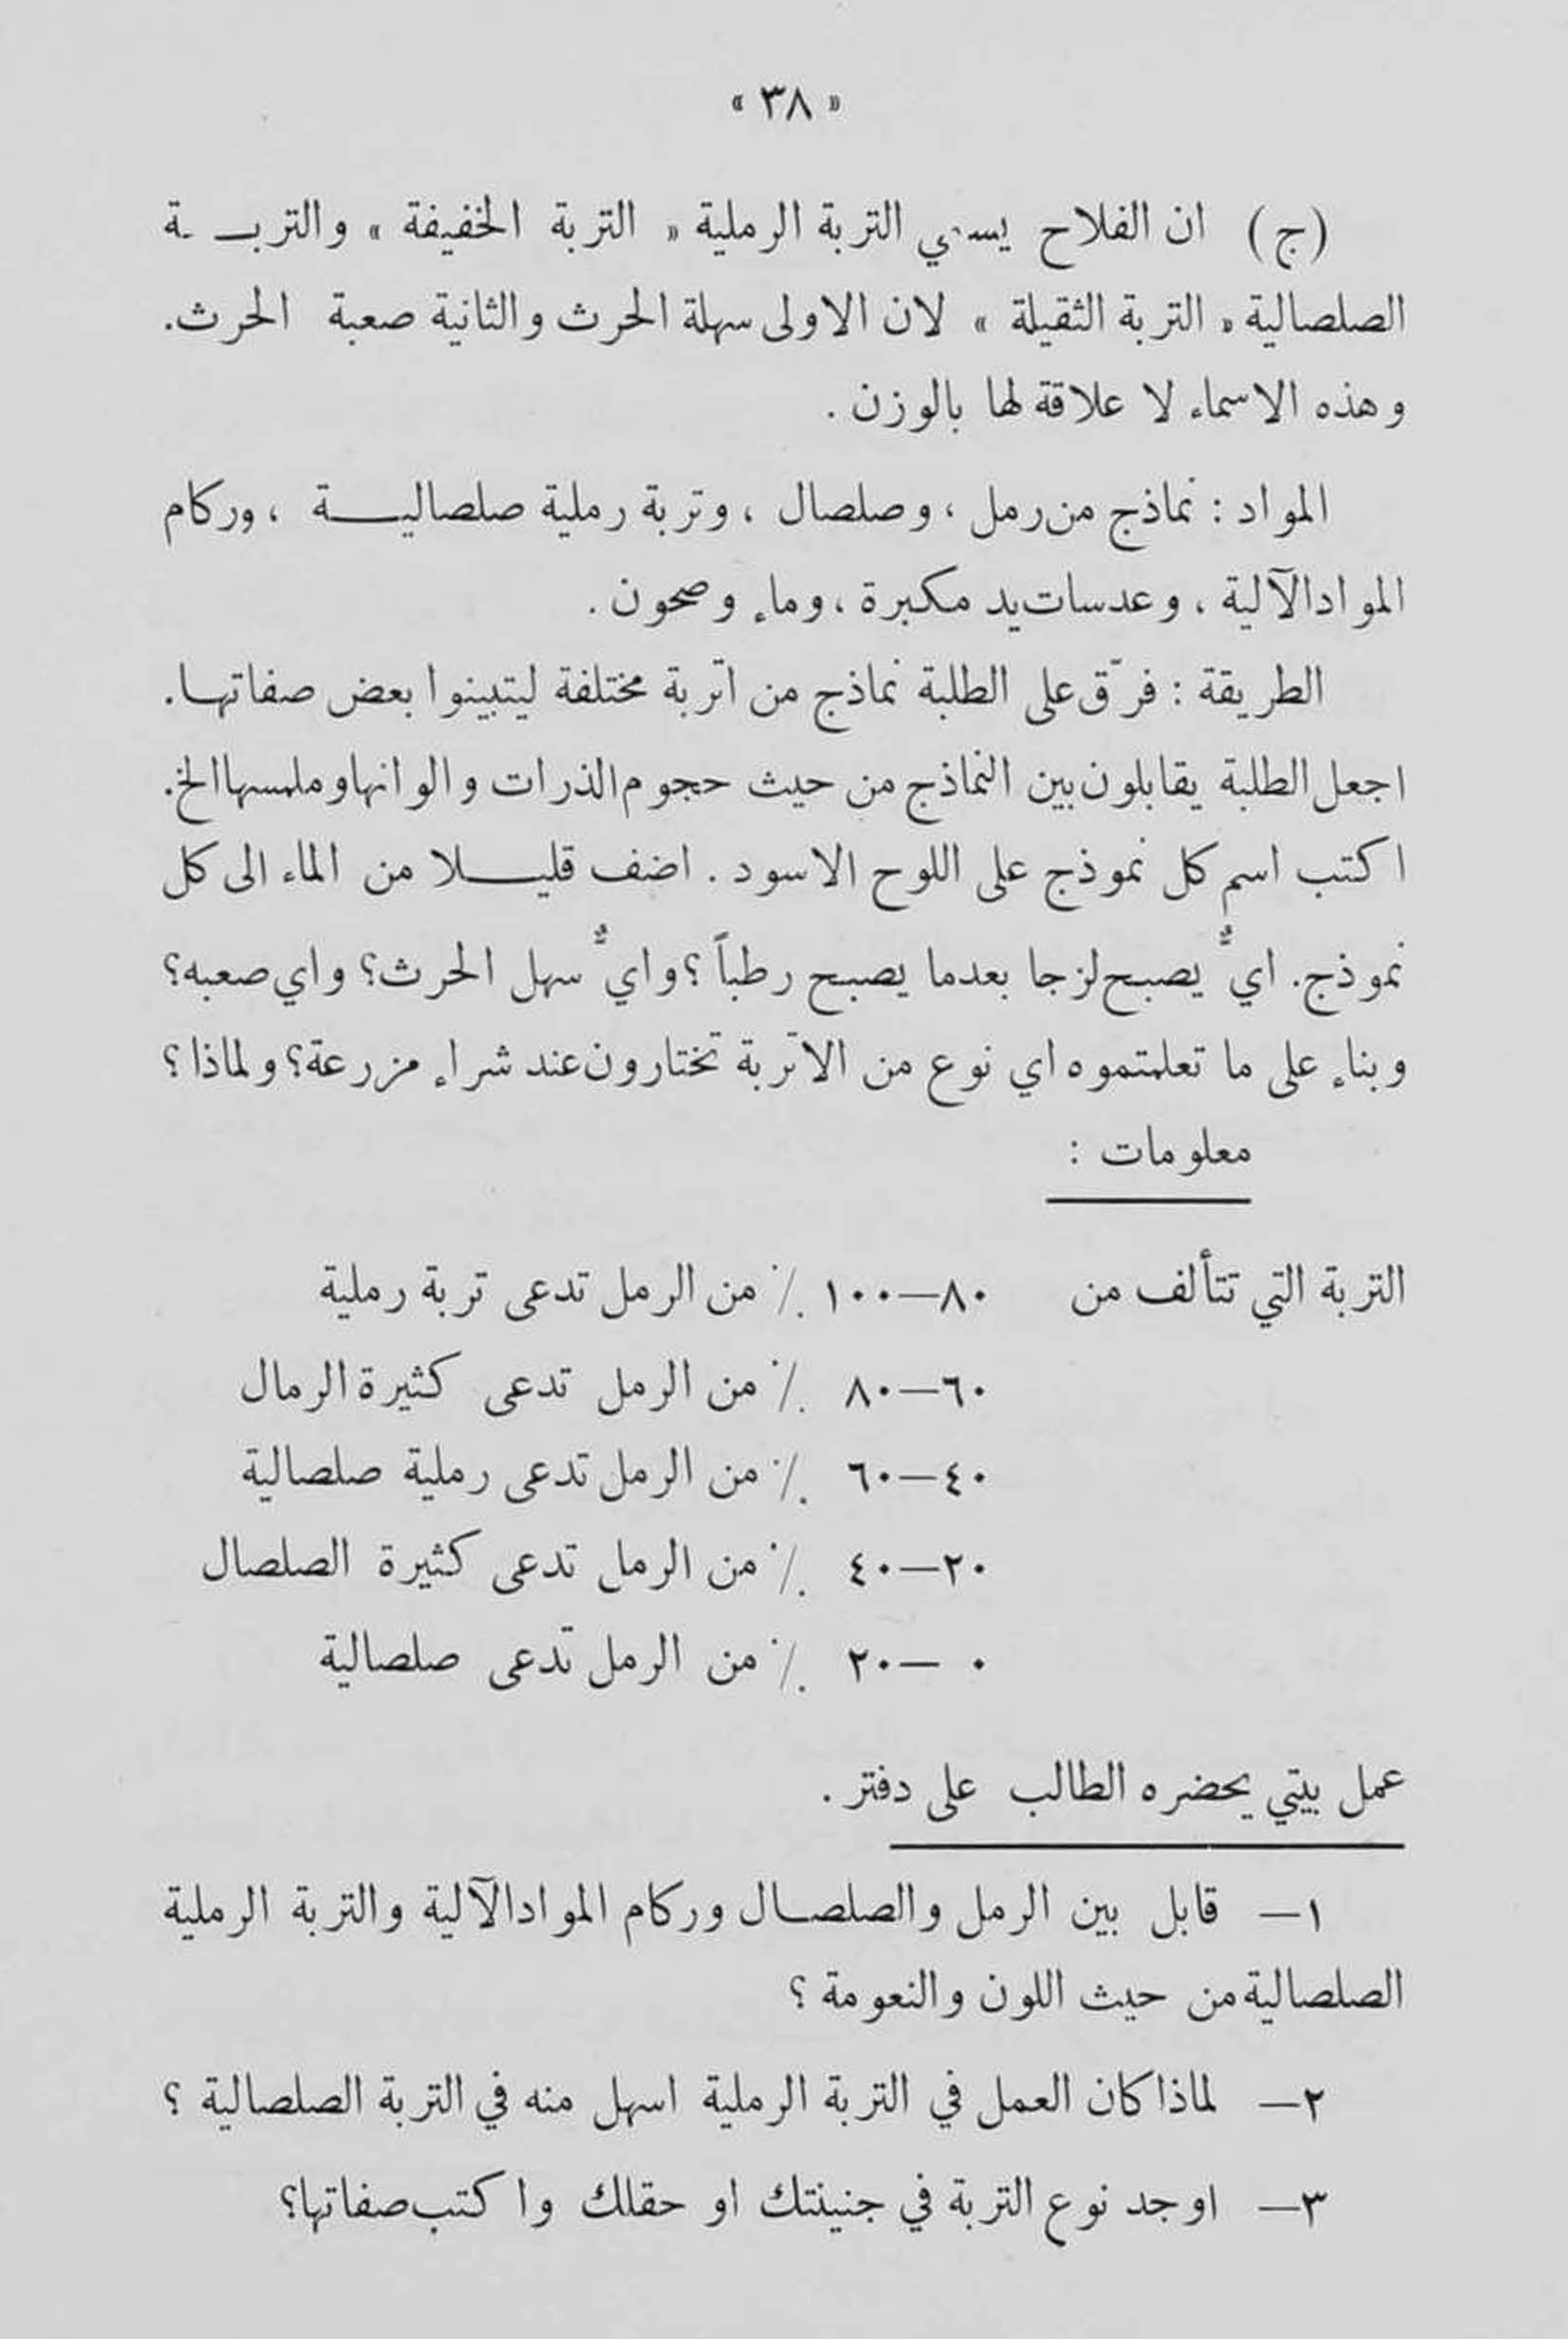 « ٣٨ »
(ج) ان الفلاح يسمي التربة الرملية « التربة الخفيفة » والتربـة
الصلصالية « التربة الثقيلة » لان الاولى سهلة الحرث والثانية صعبة الحرث.
وهذه الاسماء لا علاقة لها بالوزن .
المواد : نماذج من رمل ، وصلصال ، وتربة رملية صلصاليـــة ، وركام
المواد الآلية ، وعدسات يد مكبرة ، وماء وصحون .
الطريقة : فرّق على الطلبة نماذج من اتربة مختلفة ليتبينوا بعض صفاتهـا.
اجعل الطلبة يقابلون بين النماذج من حيث حجوم الذرات والوانها وملمسها الخ.
اكتب اسم كل نموذج على اللوح الاسود . اضف قليــلا من الماء الى كل
نموذج. ايٌّ يصبح لزجا بعدما يصبح رطباً ؟ وايٌّ سهل الحرث؟ واي صعبه؟
وبناء على ما تعلمتموه اي نوع من الاتربة تختارون عند شراء مزرعة؟ ولماذا ؟
معلومات :
التربة التي تتألف من ٨٠—١٠٠ ٪ من الرمل تدعى تربة رملية
٦٠—٨٠ ٪ من الرمل تدعى كثيرة الرمال
٤٠—٦٠ ٪ من الرمل تدعى رملية صلصالية
٢٠—٤٠ ٪ من الرمل تدعى كثيرة الصلصال
٠ —٢٠ ٪ من الرمل تدعى صلصالية
عمل بيتي يحضره الطالب على دفتر .
١— قابل بين الرمل والصلصـال وركام المواد الآلية والتربة الرملية
الصلصالية من حيث اللون والنعومة ؟
٢— لماذا كان العمل في التربة الرملية اسهل منه في التربة الصلصالية ؟
٣— اوجد نوع التربة في جنينتك او حقلك واكتب صفاتها؟